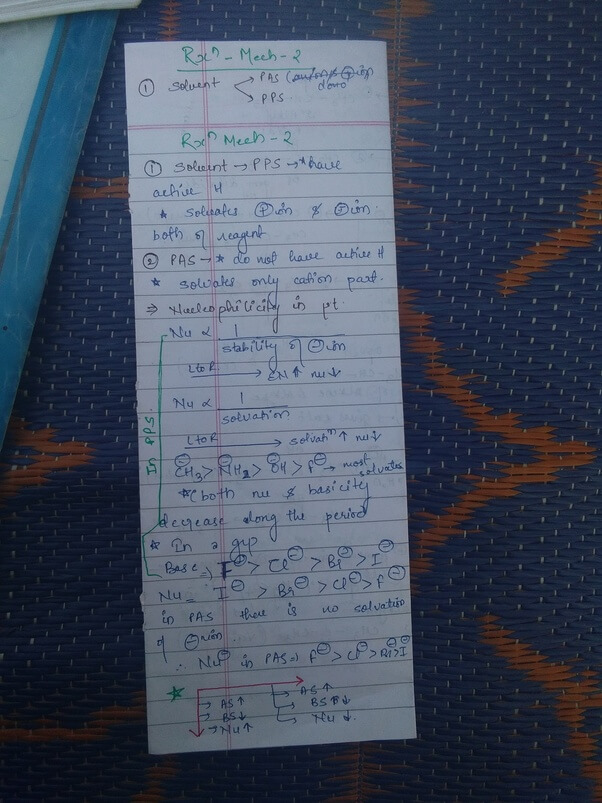 Rxⁿ - Mech - 2
① Solvent → PAS ⊕ion
→ PPS
Rxⁿ Mech - 2
① Solvent → PPS → * have
active H
* solvates ⊕ion & ⊖ion
both of reagent
② PAS → * do not have active H
* solvates only cation part.
⇒ Nucleophilicity in pt.
Nu ∝ 1 / stability of ⊖ion
LtoR → EN↑ nu↓
Nu ∝ 1 / solvation
LtoR → solvatⁿ↑ nu↓
In PPS.
⊖CH₃ > ⊖NH₂ > ⊖OH > F⊖ → most
solvates
*(both nu & basicity
decrease along the period
* In a grp
Base ⇒ F⊖ > Cl⊖ > Br⊖ > I⊖
Nu = I⊖ > Br⊖ > Cl⊖ > F⊖
in PAS there is no solvation
of ⊖ion.
∴ Nu⊖ in PAS ⇒ F⊖ > Cl⊖ > Br⊖ > I⊖
→ AS↑ → AS↑
→ BS↓ → BS↓
→ Nu↑ → Nu↓.